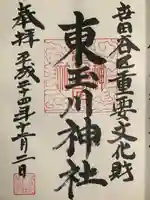 世田谷区重要文化財
東玉川神社
奉拝
平成二十四年十一月二日